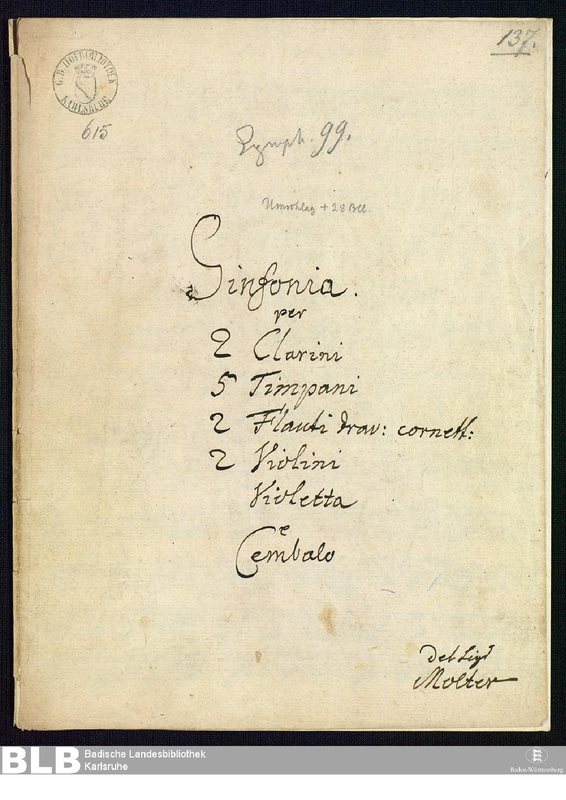 137.
G. B. HOFBIBLIOTHEK
KARLSRUHE
615
Symph. 99.
Umschlag + 28 Bll.
Sinfonia.
per
2 Clarini
5 Timpani
2 Flauti Trav: cornett:
2 Violini
Violetta
e
Cembalo
Del Sigr
Molter
BLB Badische Landesbibliothek
Karlsruhe
Baden-Württemberg